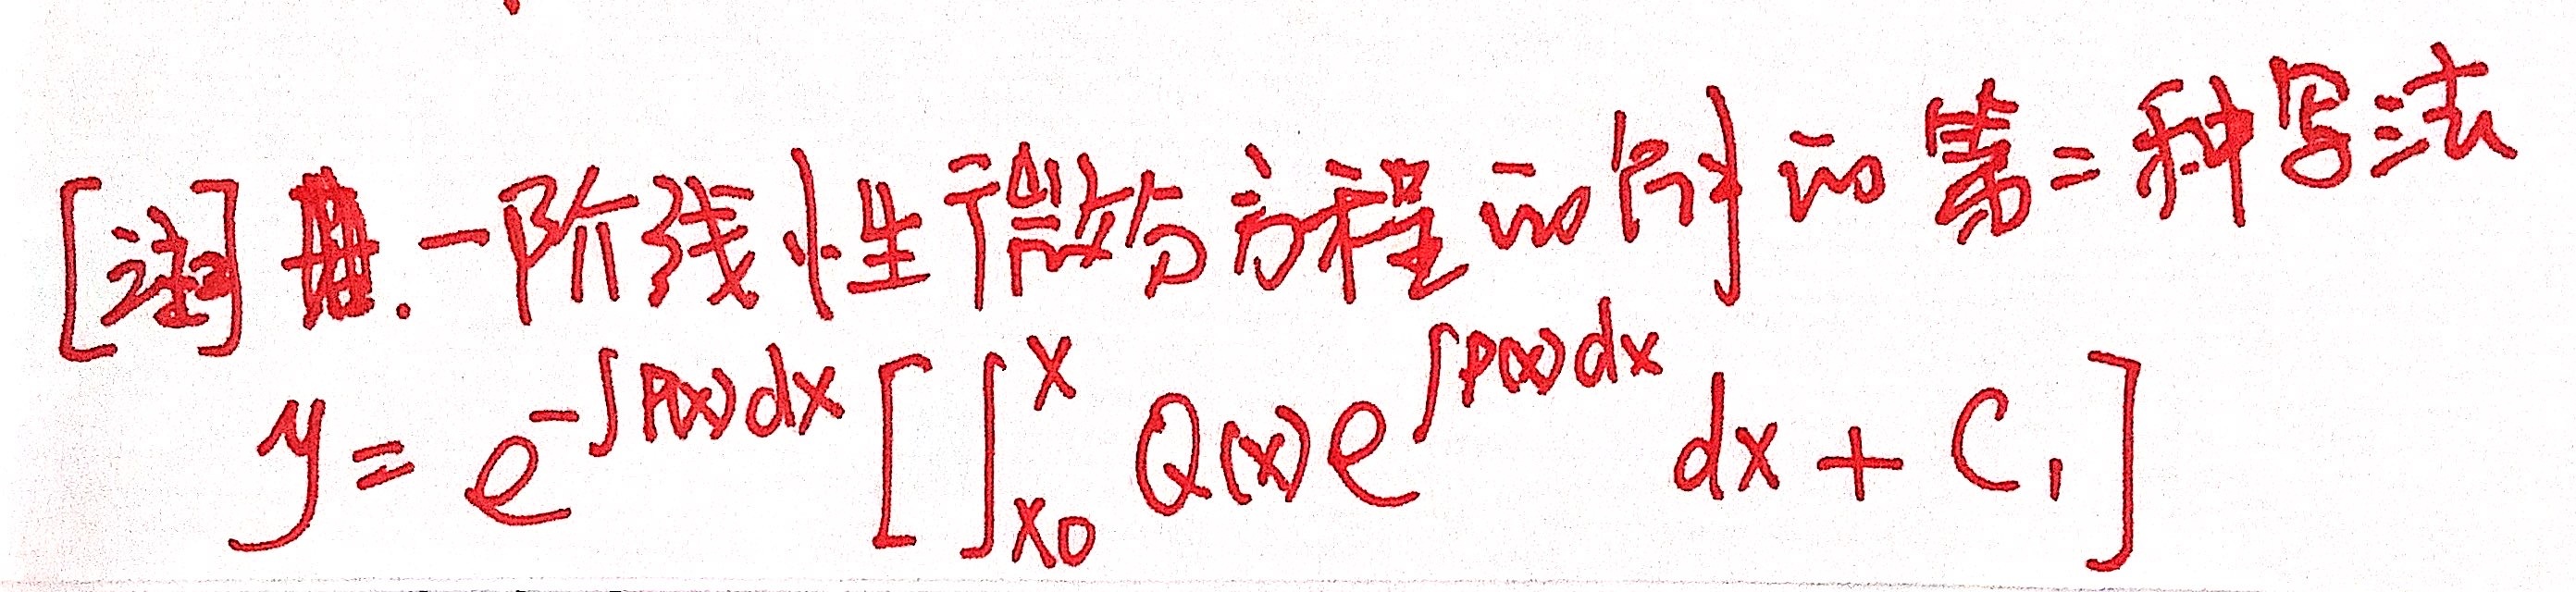 [注] 一阶线性微分方程的解的第二种写法
y = e^{-∫P(x)dx} [∫_{x0}^{x} Q(x)e^{∫P(x)dx} dx + C₁]